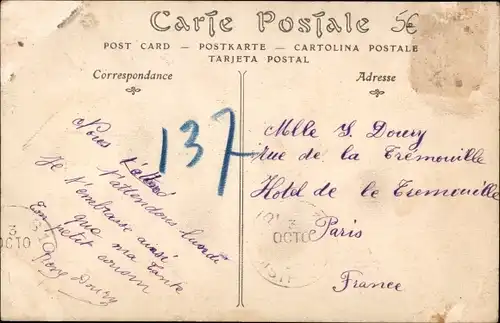 Carte Postale 5€
POST CARD — POSTKARTE — CARTOLINA POSTALE
TARJETA POSTAL
Correspondance
Adresse
Nous
t'attendons lundi
Je t'embrasse ainsi
que ma Tante
Ton petit cousin
Doury
137
Mlle Y. Doury
rue de la Tremouille
Hotel de le Tremouille
Paris
France
3
OCTO
3
OCTO